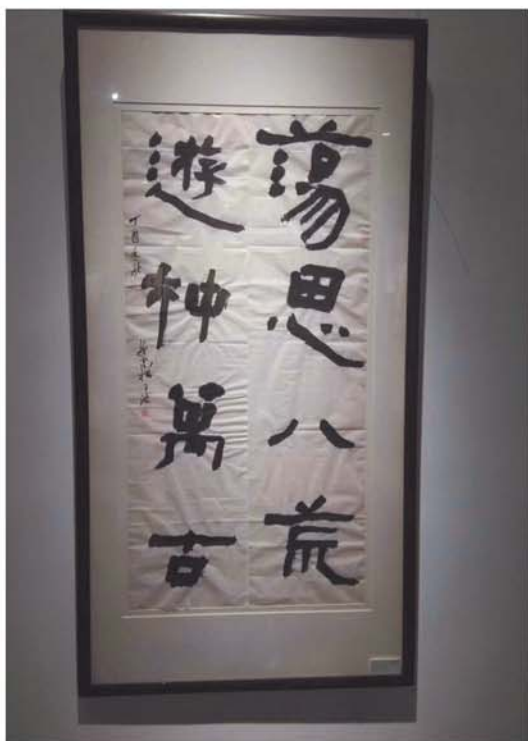 蕩思八荒
遊神萬古